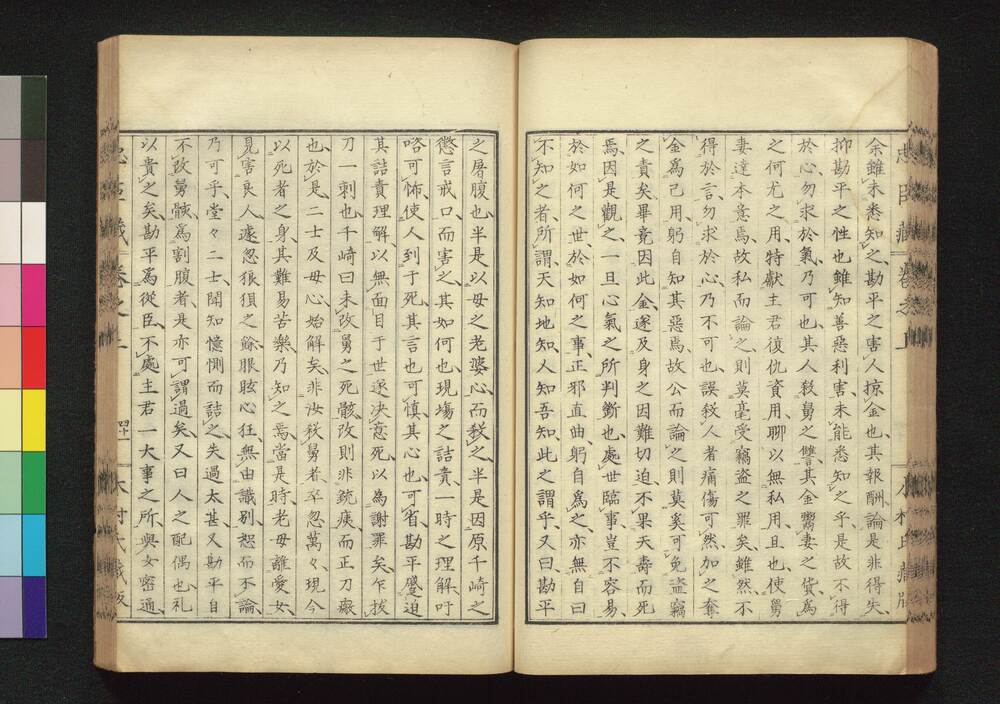 余雖未悉知之勘平之害人掠金也其報酬論是非得失
抑勘平之性也雖知善惡利害未能悉知之乎是故不得
於心勿求於氣乃可也其人殺舅之讐其金鬻妻之貨爲
之何尤之用特獻主君復仇資用聊以無私用且也使舅
妻達本意焉故私而論之則莫毫受竊盗之罪矣雖然不
得於言勿求於心乃不可也誤殺人者痛傷可然加之奪
金爲己用躬自知其惡焉故公而論之則莫奚可免盗竊
之責矣畢竟因此金遂及身之因難切迫不果天壽而死
焉因是觀之一旦心氣之所判斷也處世臨事豈不容易
於如何之世於如何之事正邪直曲躬自爲之亦無自曰
不知之者所謂天知地知人知吾知此之謂乎又曰勘平
之屠腹也半是以母之老婆心而殺之半是因原千崎之
懲言戒口而害之其如何也現塲之詰責一時之理解吁
咯可怖使人到于死其言也可慎其心也可省勘平蹙迫
其詰責理解以無面目于世遂决意死以為謝罪矣乍拔
刀一刺也千崎曰未改舅之死骸改則非銃痍而正刀瘢
也於是二士及母心始解矣非汝殺舅者卒忽萬々現今
以死者之身其難易苦樂乃知之焉當是時老母離愛女
見害良人遽忽狼狽之餘眼眩心狂無由識別恕而不論
乃可乎堂々二士聞知憶惻而詰之失過太甚又勘平自
不改舅骸爲割腹者是亦可謂過矣又曰人之配偶也礼
以貴之矣勘平爲從臣不處主君一大事之所與女密通
忠臣藏 卷之上
木村氏藏版